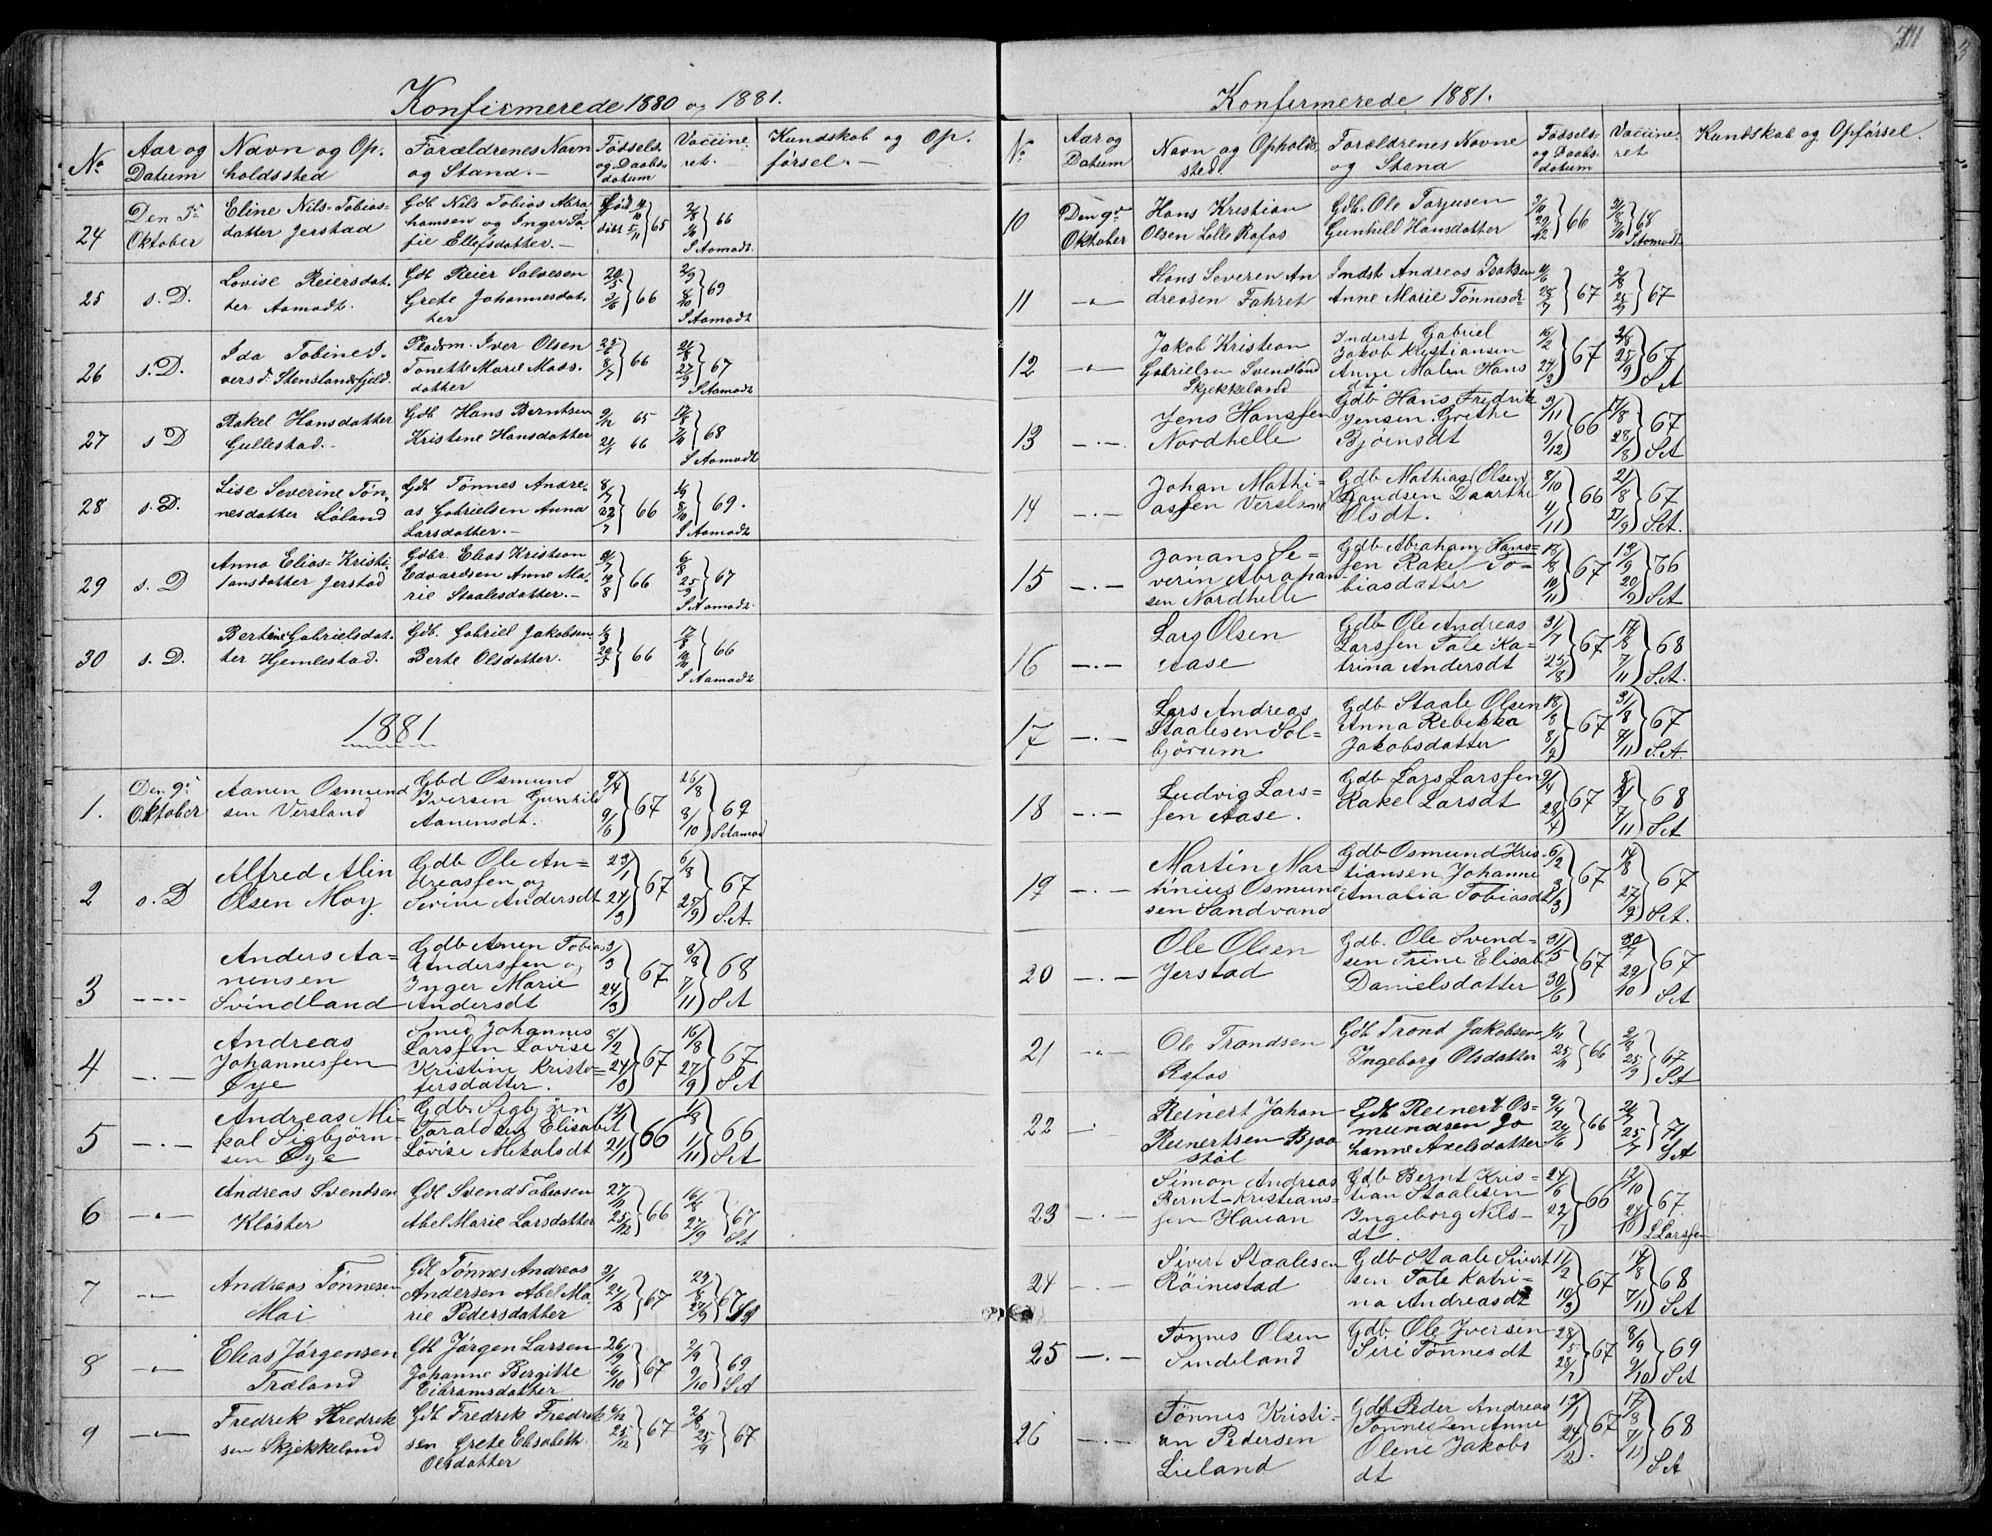 Konfirmerede 1880 og 1881.
No
Aar og Datum
Navn og Op-
holdssted
Forældrenes Navn
og Stand. –
Fødsels
og Daabs-
datum
Vaccine
ret.
Kundskab og Op-
førsel. –
24
Den 3die
Oktober
Eline Nils-Tobias-
datter Jerstad
Gdb Nils Tobias Abra
hamsen og Inger So-
fie Ellefsdatter. –
65
66
S Aamodt
25
s. D.
Lovise Reiersdat-
ter Aamodt.
Gdb Reier Salvesen
Grete Johannesdat-
ter
66
69
S Aamodt
26
s. D.
Ida Tobine I-
versd. Stenslandsfjeld.
Pladsm. Iver Olsen
Tonette Marie Mads-
datter
66
67
S Aamodt
27
s D
Rakel Hansdatter
Gullestad. –
Gdb Hans Berntsen
Kristine Hansdatter
65
66
68
S Aamodt
28
s. D.
Lise Severine Tøn-
nesdatter Løland
Gdb Tønnes Andre-
as Gabrielsen Anna
Larsdatter. –
66
69.
S Aamodt
29
s. D
Anna Elias-Kristi-
ansdatter Jerstad
Gdbr. Elias Kristian
Edvardsen Anne Ma-
rie Staalesdatter. –
66
67
S Aamodt.
30
s. D.
Bertine Gabrielsdat-
ter Hjemlestad.
Gdb. Gabriel Jakobsen
Berte Olsdatter.
66
66
S Aamodt
1881
1.
Den 9de
Oktober
Aanen Osmund
sen Versland
Gbd Osmund
Iversen Gunhild
Aanensdt.
9/4
9/6
67
26/8
8/10
69
S Aamod
2
s. D
Alfred Alin
Olsen Moy
Gdb Ole An=
dreassen og
Sevine Andersdt
23/1
24/3
67
6/8
25/9
67
S.A.
3
Anders Aa-
nensen
Svindland
Gdb Anen Tobias
Anderssen og
Inger Marie
Andersdt
3/3
24/3
67
8/8
7/11
68
S A
4
Andreas
Johannessen
Øye
Smed Johannes
Larssen Lovise
Kristine Kristo=
fersdatter.
8/2
24/3
67
16/8
27/9
67
S A
5
Andreas Mi-
kal Sigbjørn-
sen Øye
Gdb. Sigbjørn
Taraldsen Elisabet
Lovise Mikalsdt
21/1
66
1/11
66
S A
6
Andreas Svendsen
Kløster
Gdb Svend Tobiasen
Abel Marie Larsdatter
25/12
66
16/8
27/9
67
S A
7
Andreas Tønnesen
Moi
Gdb Tønnes Andreas
Andersen Abel Ma-
rie Pedersdatter
67
67
8
Elias Jørgensen
Træland
Gdb Jørgen Larsen
Johanne Bergitte
Eibramsdatter
26/9
6/10
67
2/9
9/10
69
S A
9
Fredrik Fredrik
sen Skjekkeland
Gdb Fredrik Fredrik
sen Grete Elisabeth
Olsdatter
67
67
Konfirmerede 1881.
No
Aar og
Datum
Navn og Opholds
sted.
Forældrenes Navne
og Stand
Fødsels-
og Daabs-
datum
Vaccine-
ret
Kundskab og Opførsel.
10
Den 9de
Oktober
Hans Kristian
Olsen Lille Rafos
Gdb. Ole Torjusen
Gunhild Hansdatter
66
68
S Aamodt
11
Hans Severen An
dreasen Fahret
Indst Andreas Isaksen
Anne Marie Tønnesdt
67
67
12
Jakob Kristian
Gabrielsen Svendland
Skjekkeland
Inderst Gabriel
Jakob Kristiansen
Anne Malin Hans
dt.
67
67
S A
13
Jens Hanssen
Nordhelle
Gdb Hans Fredrik
Jensen Grethe
Bjørnsdt
3/11
9/12
66
17/8
28/8
67
S A
14
Johan Mathi-
assen Versland
Gdb Mathias (Olsen)
Daarthe
Olsdt.
8/10
4/11
66
21/8
67
S A.
15
Jonans Se-
verin Abraham-
sen Nordhelle
Gdb Abraham Hans=
sen Rakel To-
biasdatter
67
66
S A
16
Lars Olsen
Aase
Gdb Ole Andreas
Larssen Tale Ka=
trina Andersdt
31/7
25/8
67
17/8
7/11
68
S.A.
17
Lars Andreas
Staalesen Sol-
bjørum
Gdb Staale Olsen
Anna Rebekka
Jakobsdatter
67
31/8
7/11
67
S.A
18
Ludvig Lars=
sen Aase.
Gdb Lars Larssen
Rakel Larsdt
9/4
28/4
67
7/11
68
S A
19
Martin Mar-
tinius Osmund
sen Sandvand
Gdb Osmund Kris-
tiansen Johanne
Amalia Tobiasdt
6/2
67
14/8
27/9
67
S A.
20
Ole Olsen
Jerstad
Gdb. Ole Svend=
sen Trine Elisabet
Danielsdatter
31/5
30/6
67
29/10
67
S A
21
Ole Trondsen
Rafos
Gdb Trond Jakobsen
Ingeborg Olsdatter
66
25/9
67
S A
22
Reinert Johan
Reinertsen Bjaa
støl
Gdb Reinert Os-
mundsen Jo
hanne Axelsdatter
66
71
S A
23
Simon Andreas
Bernt-Kristians-
sen Hauan
Gdb Bernt Kris-
tian Staalesen
Ingeborg Nils-
dt
24/6
22/7
66
12/10
67.
L Larssen
24
Sivert Staalesen
Røinestad
Gdb Staale Sivert
sen Tale Katri-
na Andreasdt
11/2
10/3
67
14/8
7/11
68
S A
25
Tønnes Olsen
Sindeland
Gdb. Ole Iversen
Siri Tønnesdt
28/5
67
8/9
9/10
69
S A
26
Tønnes Kristi-
an Pedersen
Lieland
Gdb Peder Andreas
Tønnessen Anne
Olene Jakobs
dt
24/2
67
7/11
68
S A